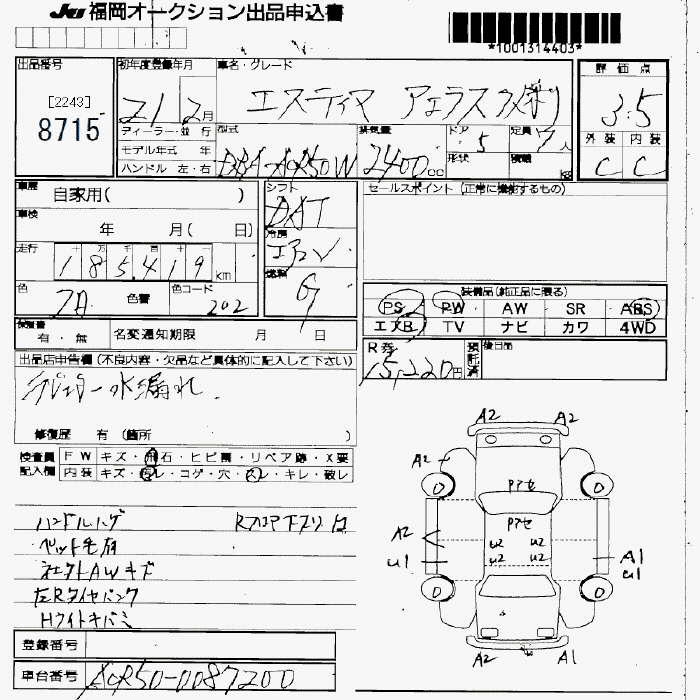 JU 福岡オークション出品申込書
*1001314403*
出品番号
[2243]
8715
初年度登録年月
21 2月
ディーラー・並 行
モデル年式 年
ハンドル 左・右
車名・グレード
エスティマ アエラス
型式
DBA-ACR50W
排気量
2400cc
ドア
5
形状
定員
7人
積載
kg
評価点
3.5
外装 内装
C C
車歴
自家用( )
車検
年 月( 日)
走行
十 万 千 百 十 一
185419km
色
色替
色コード
202
シフト
DAT
冷房
エアコン
燃料
G
セールスポイント (正常に機能するもの)
装備品(純正品に限る)
PS PW AW SR ABS
エアB TV ナビ カワ 4WD
R券
15,220円
預託済
後日品
保証書
有・無
名変通知期限 月 日
出品店申告欄(不良内容・欠品など具体的に記入して下さい)
水漏れ
修復歴 有 (箇所 )
検査員
記入欄
FW キズ・飛石・ヒビ・リペア跡・X要
内装 キズ・汚レ・コゲ・穴・スレ・キレ・破レ
ハンドルハゲ
Rフロア下サリ
ペット毛有
AWキズ
左Rタイヤパンク
登録番号
車台番号 ACR50-0087200
A2 A2
A2
0 0
Pアセ
Pアセ
A2
U1
U2 U2
U2 U2
A1
U1
0 0
A2 A1